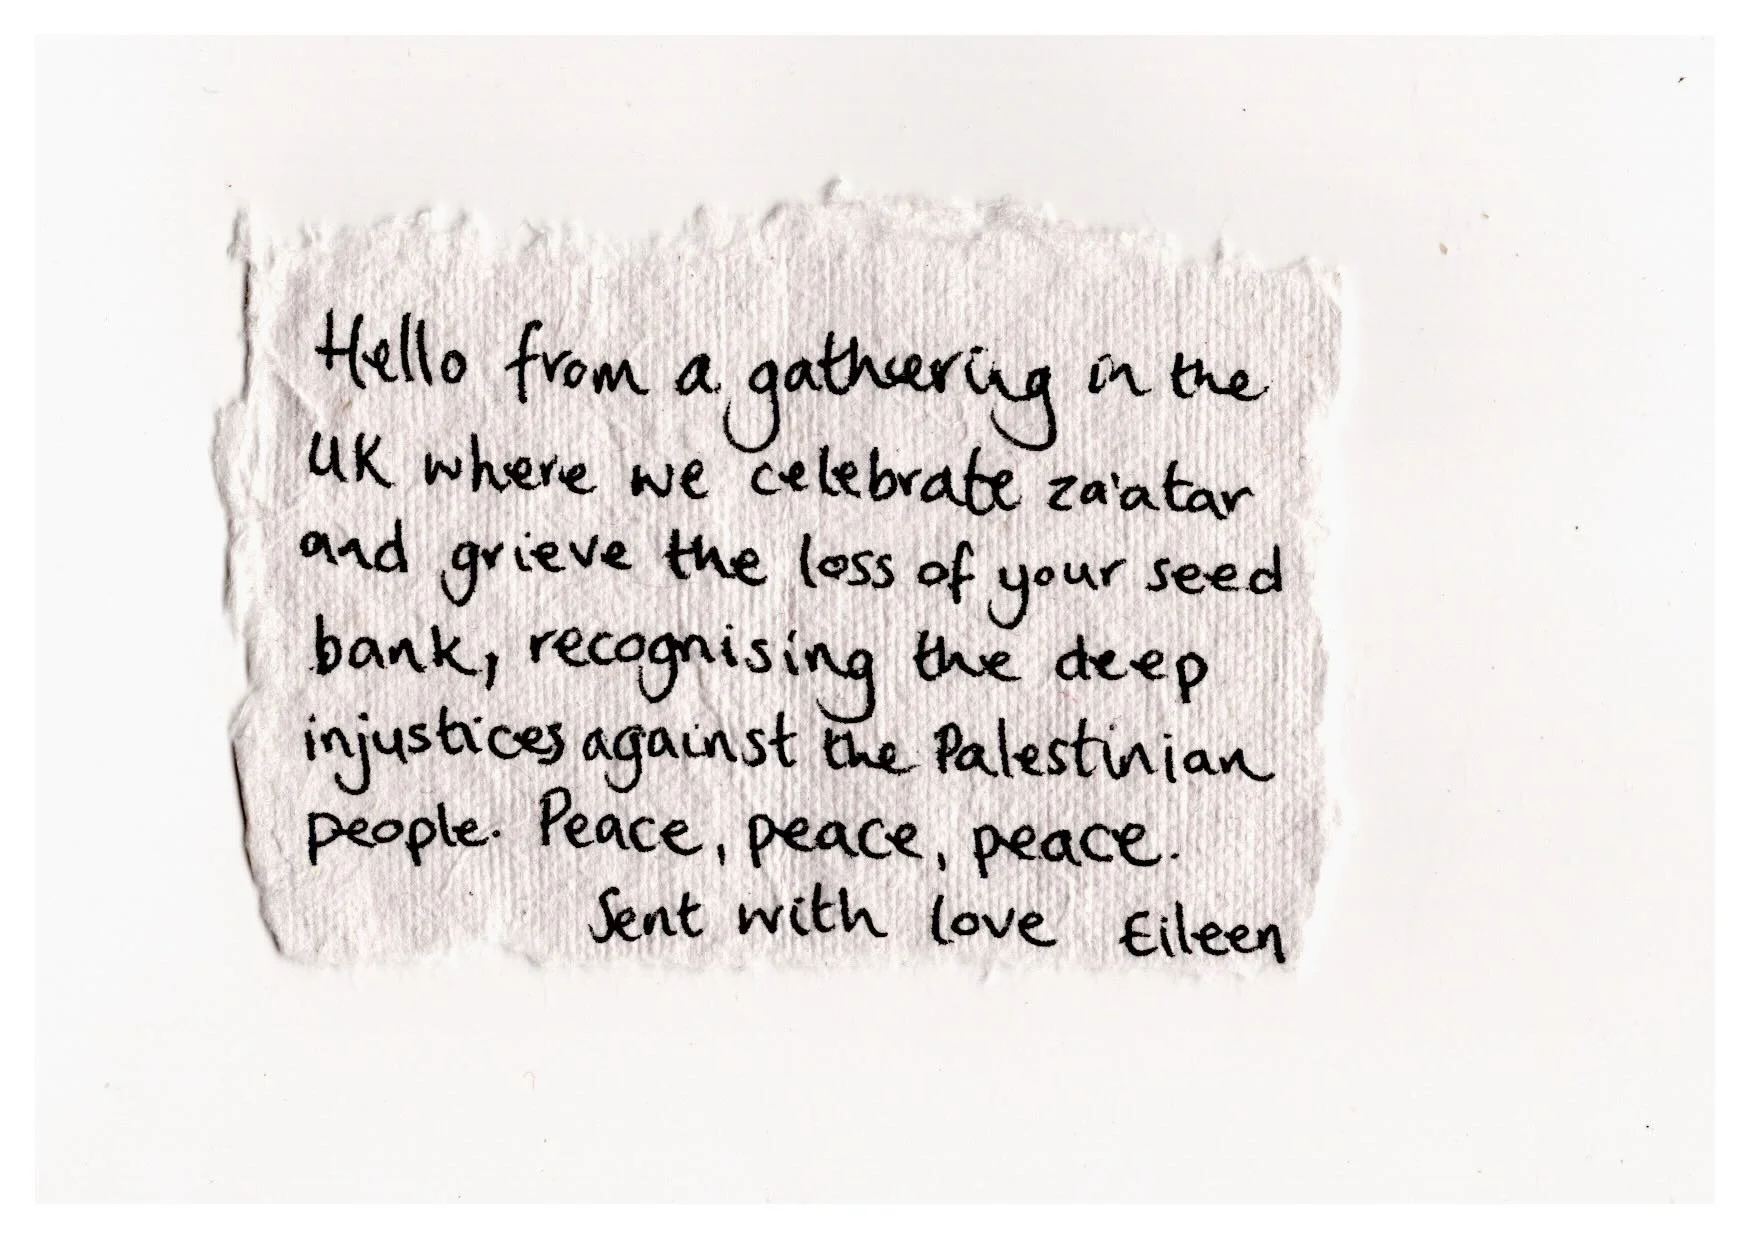 Hello from a gathering in the
UK where we celebrate za'atar
and grieve the loss of your seed
bank, recognising the deep
injustices against the Palestinian
people. Peace, peace, peace.
Sent with love Eileen